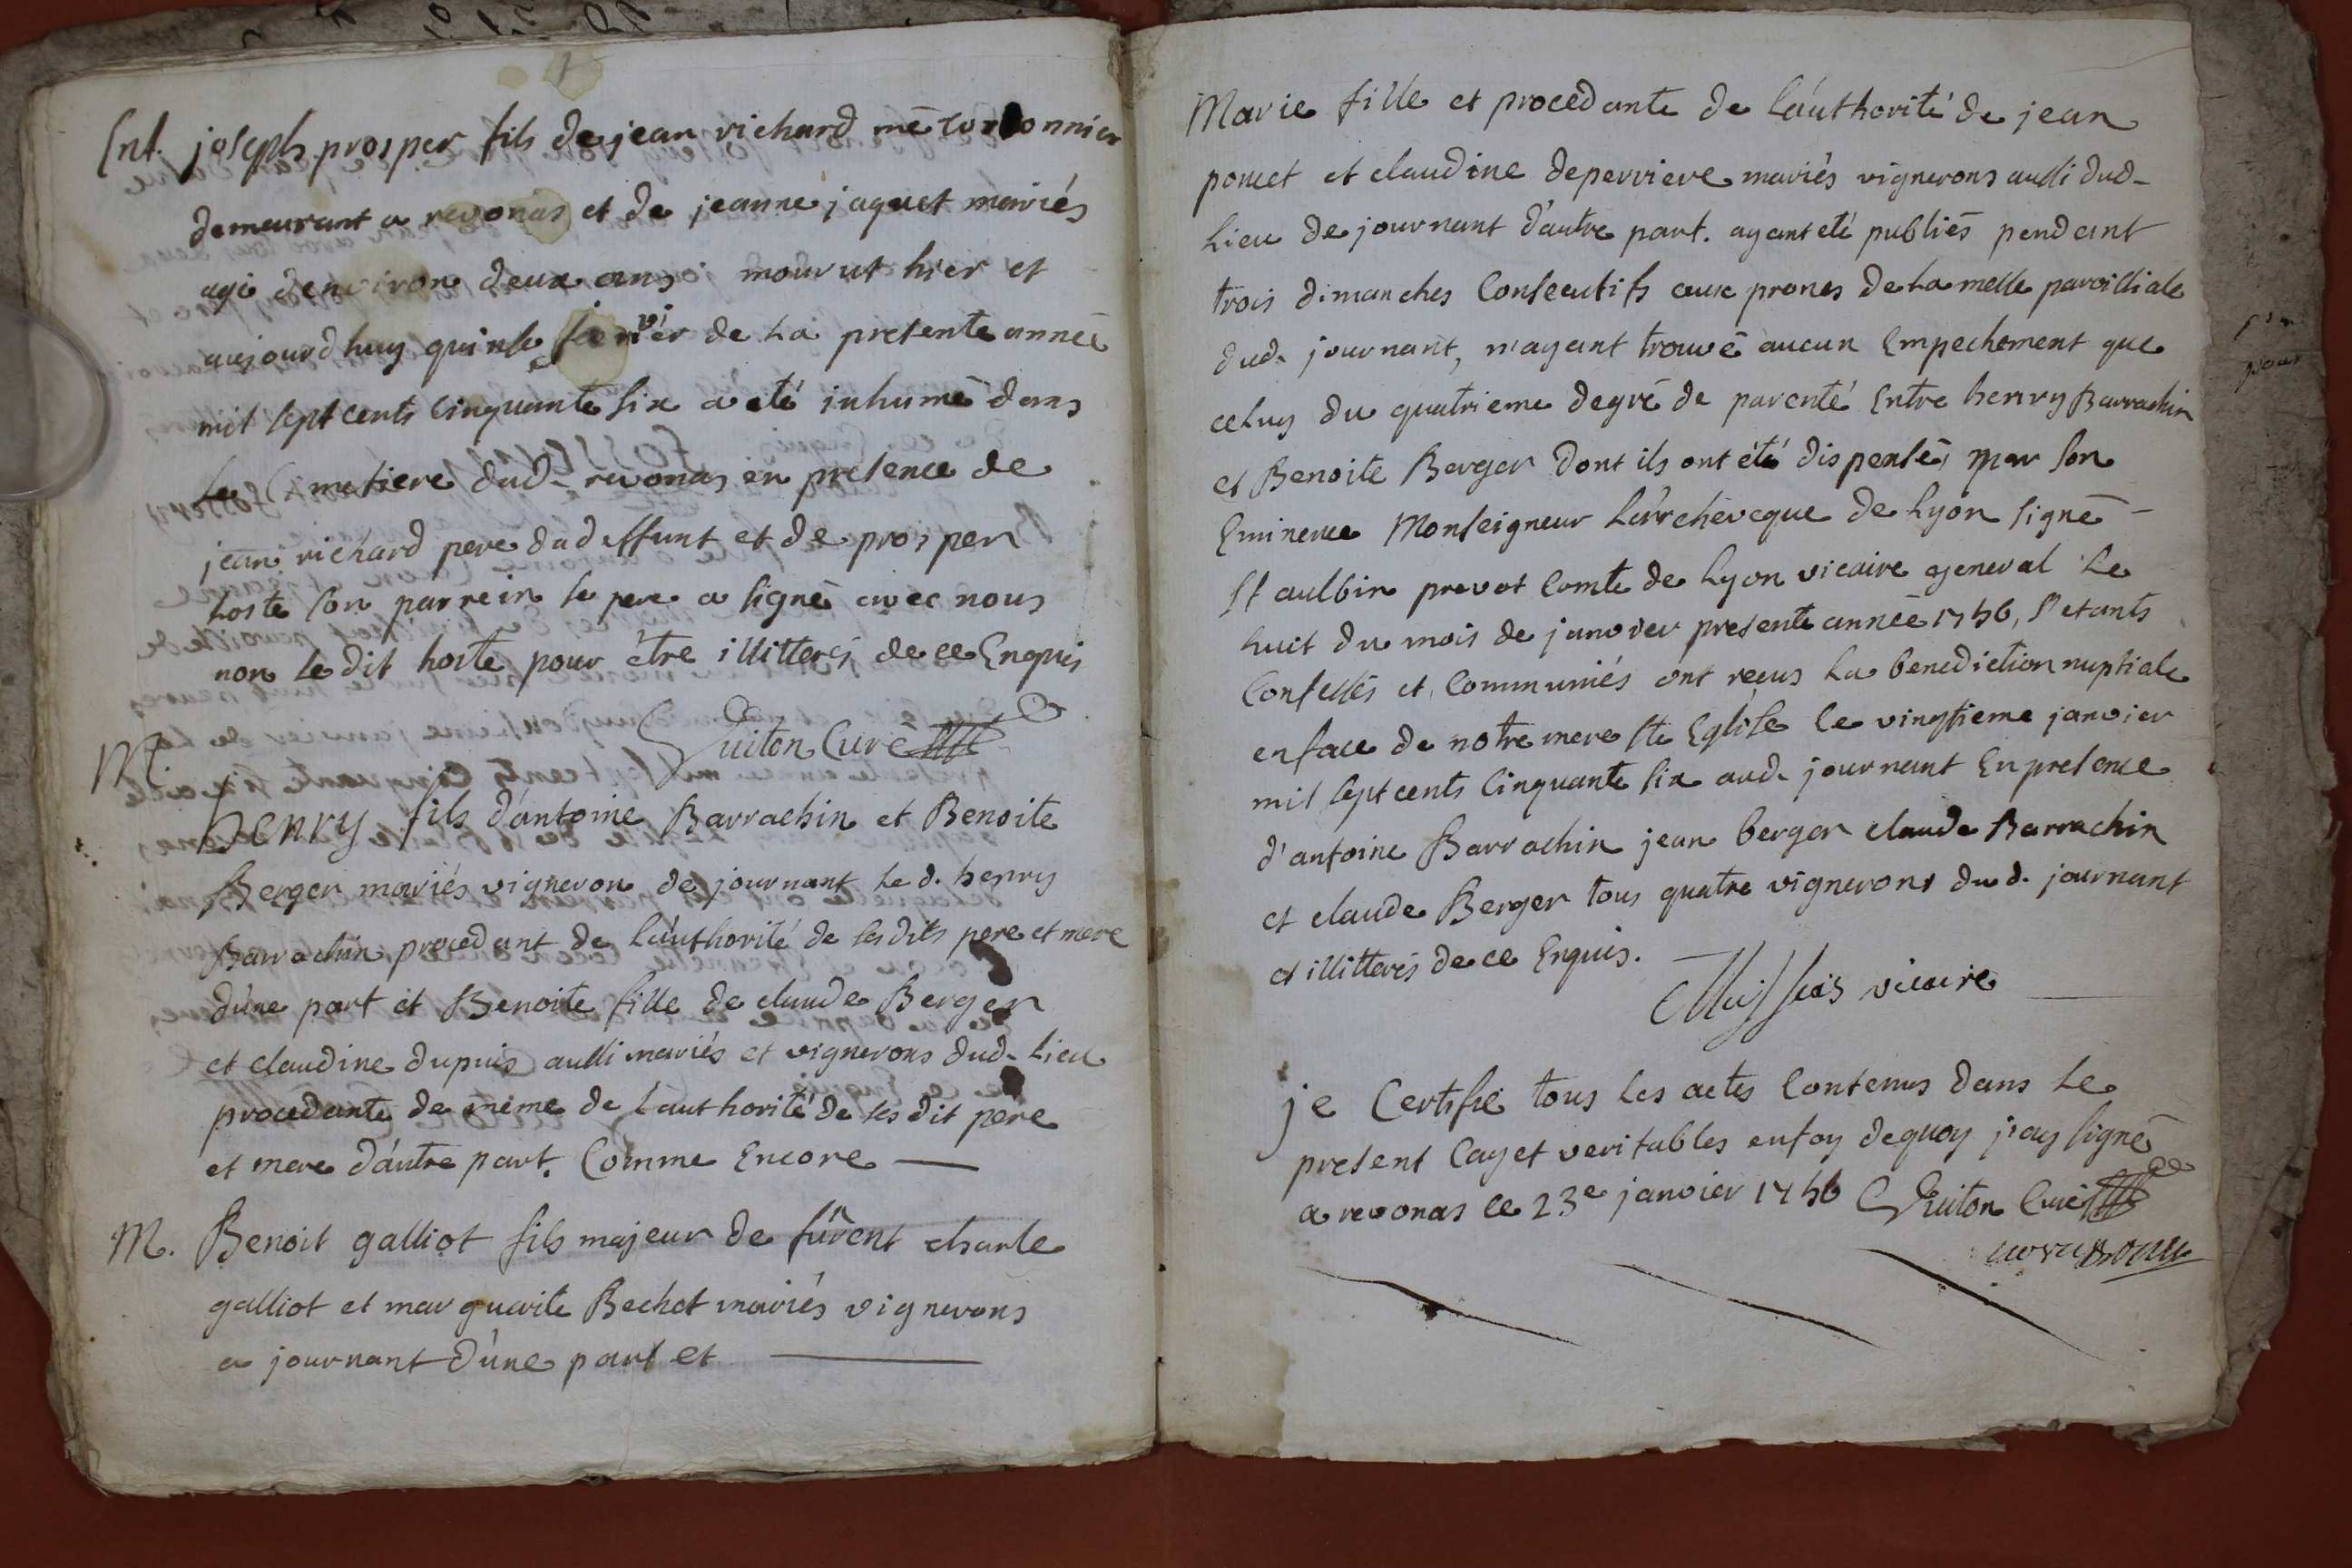 Ent. joseph prosper fils de jean richard me cordonnier
demeurant a revonas et de jeanne jaquet mariés
agé d'environ deux ans mourut hier et
aujourd'huy quinse janvier de la presente année
mil sept cents cinquante six a eté inhumé dans
le Cimetiere dud. revonas en presence de
jean richard pere dud effunt et de prosper
hoste son parrein le pere a signé avec nous
non le dit hoste pour être illitterés de ce Enquis
Guiton Curé
M.
henry fils d'antoine Barrachin et Benoite
Berger mariés vigneron de journant le d. henry
Barrachin procedant de l'authorité de ses dits pere et mere
d'une part et Benoite fille de claude Berger
et claudine dupuis aussi mariés et vignerons dud. lieu
procedante de même de l'authorité de ses dit pere
et mere d'autre part. Comme Encore
M. Benoit galliot fils majeur de fûrent charle
galliot et marguerite Bechet mariés vignerons
a journant d'une part et
Marie fille et procedante de l'authorité de jean
poncet et claudine deperriere mariés vignerons aussi dud.
lieu de journant d'autre part. ayant eté publiés pendant
trois dimanches Consecutifs aux prones de la messe paroissiale
dud. journant, n'ayant trouvé aucun Empechement que
celuy du quatrieme degré de parenté Entre henry Barrachin
et Benoite Berger dont ils ont été dispensés par son
Eminence Monseigneur l'archeveque de Lyon signé
St aulbin prevot Comte de Lyon vicaire general le
huit du mois de janvier presente année 1756, s'etants
Confessés et Communiés ont reçus la benediction nuptiale
en face de notre mere ste Eglise le vingtieme janvier
mil sept cents Cinquante six aud. journant En presence
d'antoine Barrachin jean berger claude Barrachin
et claude Berger tous quatre vignerons dud. journant
et illitterés de ce Enquis.
vicaire
je Certifie tous les actes Contenus dans le
present Cayet veritables en foy dequoy j'ay signé
a revonas le 23e janvier 1756 Guiton Curé